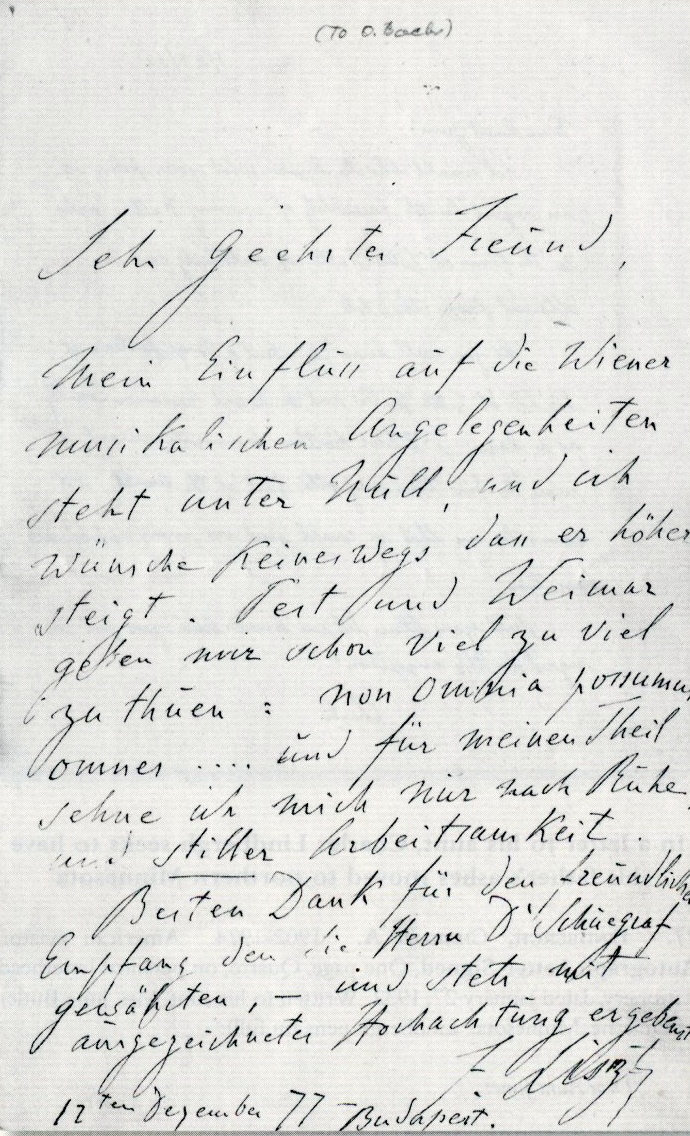 (To O. Bach)
Sehr Geehrter Freund,
Mein Einfluss auf die Wiener
musikalischen Angelegenheiten
steht unter Null, und ich
wünsche keineswegs dass er höher
steigt. Pest und Weimar
geben mir schon viel zu viel
zu thuen : non omnia possumus
omnes .... und für meinen Theil
sehne ich mich nur nach Ruhe
und stiller Arbeitsamkeit.
Besten Dank für den freundlichen
Empfang den Sie Herrn Dr Schuegraf
gewährten, und stets mit
ausgezeichneter Hochachtung ergebenst
F. Liszt
12ten Dezember 77 - Budapest.